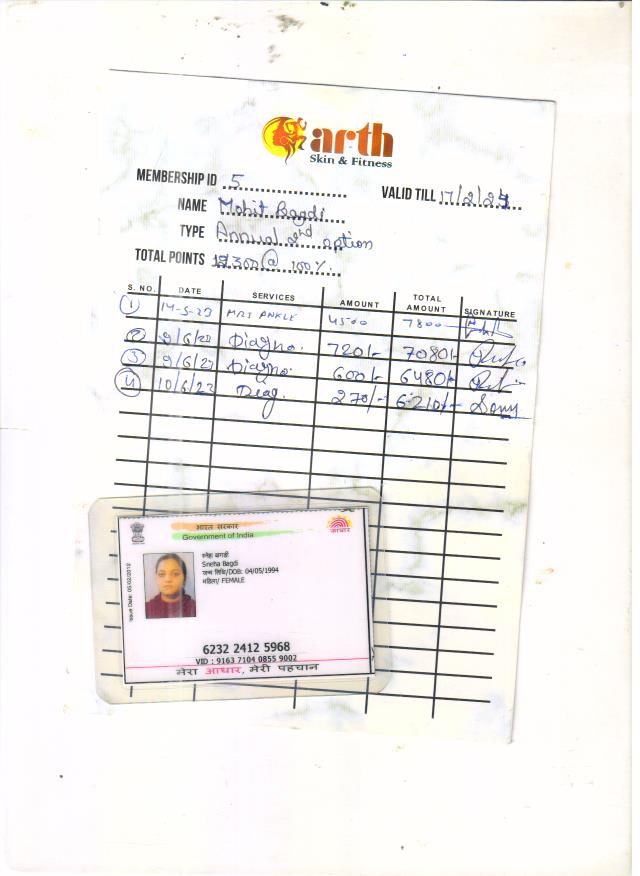 arth
Skin & Fitness
MEMBERSHIP ID 5
VALID TILL 17/2/24
NAME Mohit Bagdi
TYPE Annual 2nd option
TOTAL POINTS @ 100%
S. NO. DATE SERVICES AMOUNT TOTAL AMOUNT SIGNATURE
1 14-5-23 MRI ANKLE 4500 7800
2 9/6/23 Diagno. 720/- 7080/-
3 9/6/23 Diagno. 600/- 6480/-
4 10/6/23 Diag. 270/- 6210/- Sony
भारत सरकार
Government of India
आधार
Issue Date: 05/02/2012
स्नेहा बागडी
Sneha Bagdi
जन्म तिथि/DOB: 04/05/1994
महिला/ FEMALE
6232 2412 5968
VID : 9163 7104 0855 9002
मेरा आधार, मेरी पहचान